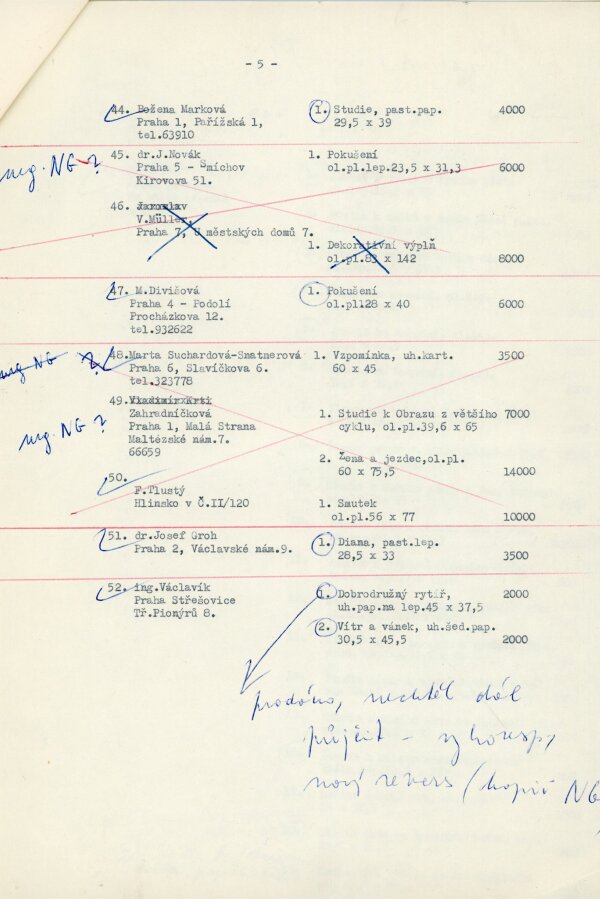 - 5 -
44. Božena Marková 1. Studie, past.pap. 4000
Praha 1, Pařížská 1, 29,5 x 39
tel.63910
neg. NG ?
45. dr.J.Novák 1. Pokušení
Praha 5 - Smíchov ol.pl.lep.23,5 x 31,3 6000
Kirovova 51.
46. Jaroslav
V.Müller,
Praha 7, U městských domů 7.
1. Dekorativní výplň
ol.pl.83 x 142 8000
47. M.Divišová 1. Pokušení
Praha 4 - Podolí ol.pl.128 x 40 6000
Procházkova 12.
tel.932622
neg NG ?
48.Marta Suchardová-Snatnerová 1. Vzpomínka, uh.kart. 3500
Praha 6, Slavíčkova 6. 60 x 45
tel.323778
neg. NG ?
49.
Zahradníčková 1. Studie k Obrazu z většího 7000
Praha 1, Malá Strana cyklu, ol.pl.39,6 x 65
Maltézské nám.7.
66659 2. Žena a jezdec,ol.pl.
60 x 75,5 14000
50.
F.Tlustý
Hlinsko v Č.II/120 1. Smutek
ol.pl.56 x 77 10000
51. dr.Josef Groh 1. Diana, past.lep.
Praha 2, Václavské nám.9. 28,5 x 33 3500
52. ing.Václavík 1. Dobrodružný rytíř, 2000
Praha Střešovice uh.pap.na lep.45 x 37,5
Tř.Pionýrů 8. 2. Vítr a vánek, uh.šed.pap.
30,5 x 45,5 2000
prodáno, nechtěl dál
půjčit -
nový revers (kopii NG